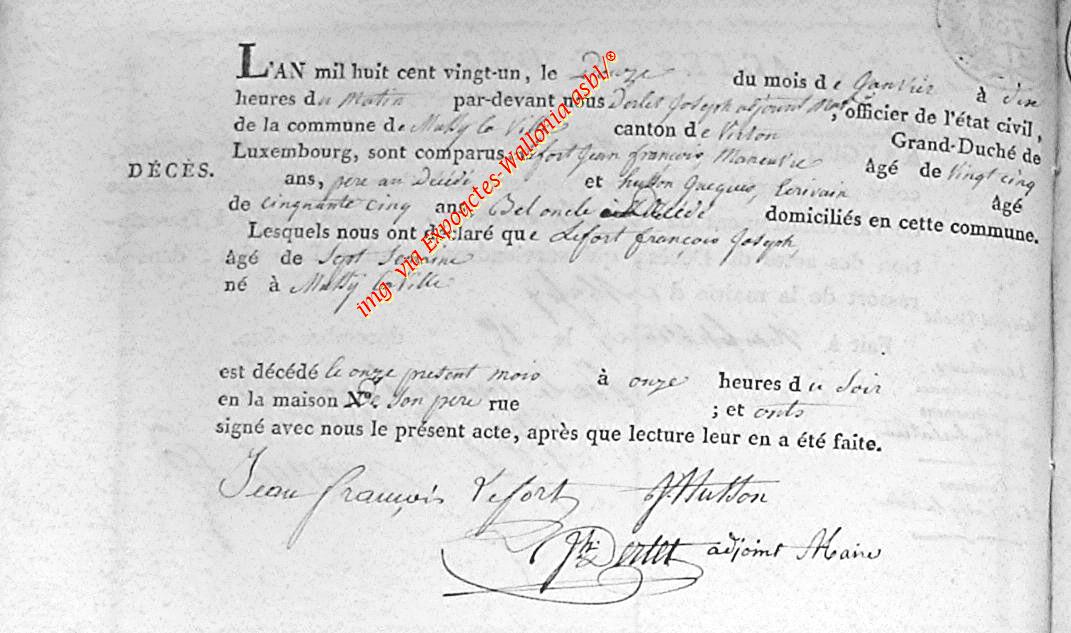 L'AN mil huit cent vingt-un, le Douze du mois de Janvier à dix
heures du Matin par-devant nous Derlet Joseph adjoint Maire, officier de l'état civil,
de la commune de Mussy la Ville canton de Virton Grand-Duché de
DÉCÈS.
Luxembourg, sont comparus Lefort Jean françois Manœuvre Âgé de vingt cinq
ans, pere au Décédé et husson Jacques, Ecrivain Âgé
de Cinquante Cinq ans Bel oncle au Décédé domiciliés en cette commune.
Lesquels nous ont déclaré que Lefort francois Joseph
âgé de Sept Semaine
né à Mussy la Ville
est décédé le onze present mois à onze heures du Soir
en la maison N.º de Son pere rue ; et onts
signé avec nous le présent acte, après que lecture leur en a été faite.
Jean françois Lefort J. Husson
Jh. Derlet adjoint Maire
img via Expoactes-Wallonia asbl/®